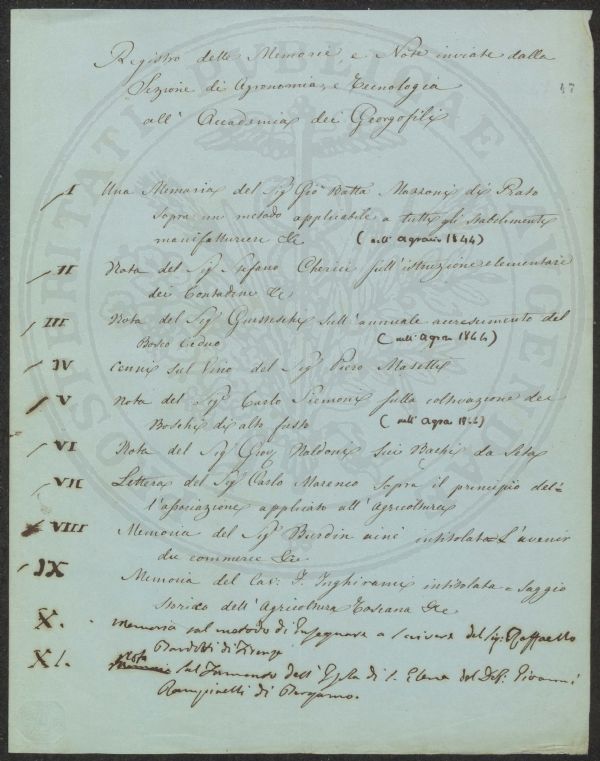 Registro delle Memorie, e Note inviate dalla
Sezione di Agronomia, e Tecnologia
all' Accademia dei Georgofili
17
I Una Memoria del Sig Gio Batta Mazzoni di Prato
sopra un metodo applicabile a tutti gli stabilimenti
manifatturieri &c (nell' agrario 1844)
II Nota del Sig Stefano Cherici sull' istruzione elementare
dei Contadini &c
III Nota del Sig sull' annuale accrescimento del
Bosco Ceduo (nell' agra 1844)
IV Cenni sul Vino del Sig Piero Masetti
V Nota del Sig Carlo Siemoni sulla coltivazione dei
Boschi di alto fusto (nell' agra 1844)
VI Nota del Sig Giov Naldoni sui Bachi da Seta
VII Lettera del Sig Carlo Marenco sopra il principio del=
l'associazione applicato all' agricoltura
VIII Memoria del Sig Burdin ainé intitolata L'avenir
du commerce &c
IX
Memoria del Cav: I. Inghirami intitolata Saggio
storico dell' Agricoltura Toscana &c
X. Memoria sul metodo di Insegnare a scrivere del Sig: Raffaello
di Firenze
XI. Nota
sul dell' Isola di S. Elena del Dott: Giovanni
di Bergamo.
POSTERITATI PUBLICAE